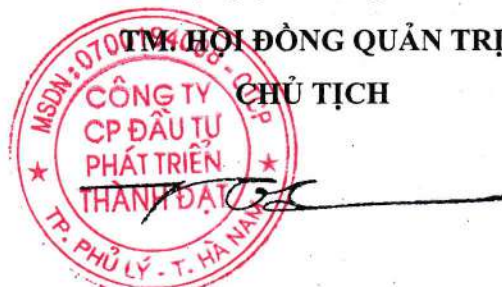 TM. HỘI ĐỒNG QUẢN TRỊ
CHỦ TỊCH
CÔNG TY
CP ĐẦU TƯ
PHÁT TRIỂN
THÀNH ĐẠT
TP. PHỦ LÝ - T. HÀ NAM